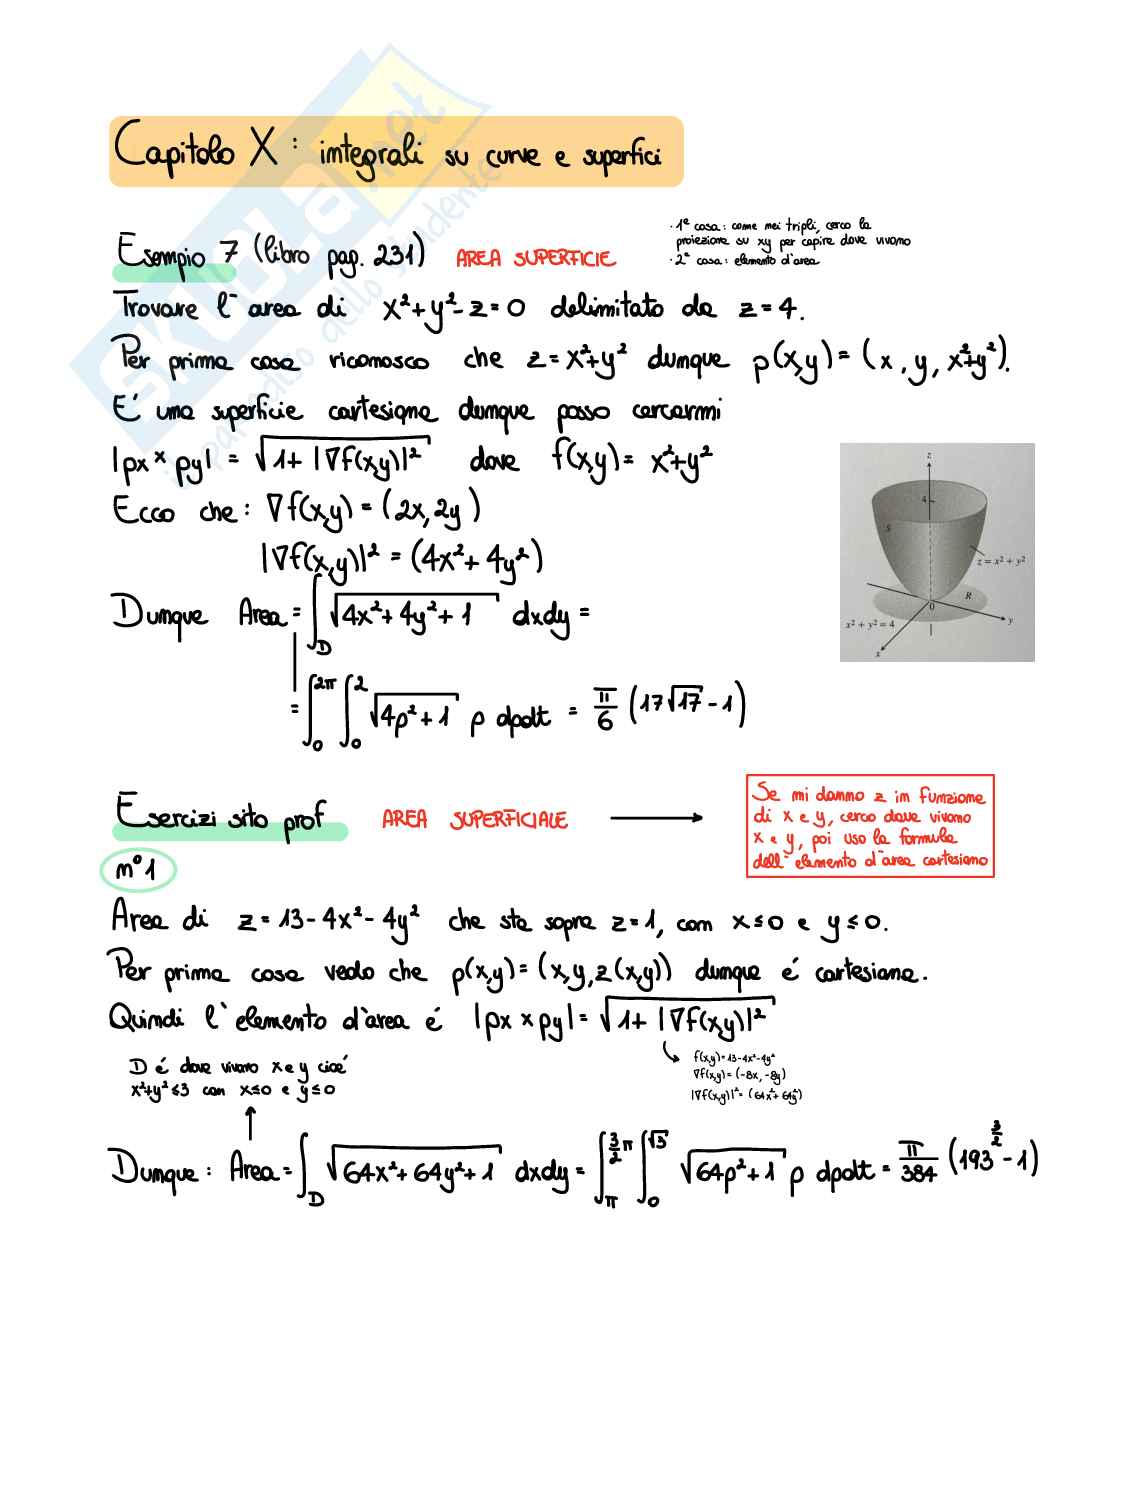 Capitolo X : integrali su curve e superfici
Esempio 7 (libro pag. 231) AREA SUPERFICIE
· 1ª cosa: come nei tripli, cerco la
proiezione su xy per capire dove vivono
· 2ª cosa: elemento d'area
Trovare l'area di x²+y²-z=0 delimitato da z=4.
Per prima cosa riconosco che z=x²+y² dunque ρ(x,y)=(x,y,x²+y²).
E' una superficie cartesiana dunque posso cercarmi
|ρx × ρy| = √(1+|∇f(x,y)|²) dove f(x,y)= x²+y²
Ecco che: ∇f(x,y)=(2x,2y)
|∇f(x,y)|² = (4x²+4y²)
Dunque Area = ∫_D √(4x²+4y²+1) dxdy =
= ∫_0^2π ∫_0^2 √(4ρ²+1) ρ dρdt = π/6 (17√17-1)
z
4
S
z = x² + y²
R
0
y
x² + y² = 4
x
Esercizi sito prof AREA SUPERFICIALE →
Se mi danno z in funzione
di x e y, cerco dove vivono
x e y, poi uso la formula
dell'elemento d'area cartesiano
n°1
Area di z=13-4x²-4y² che sta sopra z=1, con x≤0 e y≤0.
Per prima cosa vedo che ρ(x,y)=(x,y,z(x,y)) dunque é cartesiana.
Quindi l'elemento d'area é |ρx × ρy|= √(1+|∇f(x,y)|²)
f(x,y)=13-4x²-4y²
∇f(x,y)=(-8x,-8y)
|∇f(x,y)|²=(64x²+64y²)
D é dove vivono x e y cioé
x²+y²≤3 con x≤0 e y≤0
Dunque: Area = ∫_D √(64x²+64y²+1) dxdy = ∫_π^(3/2 π) ∫_0^√3 √(64ρ²+1) ρ dρdt = π/384 (193^(3/2)-1)
SKUOLA.net
il paradiso dello studente